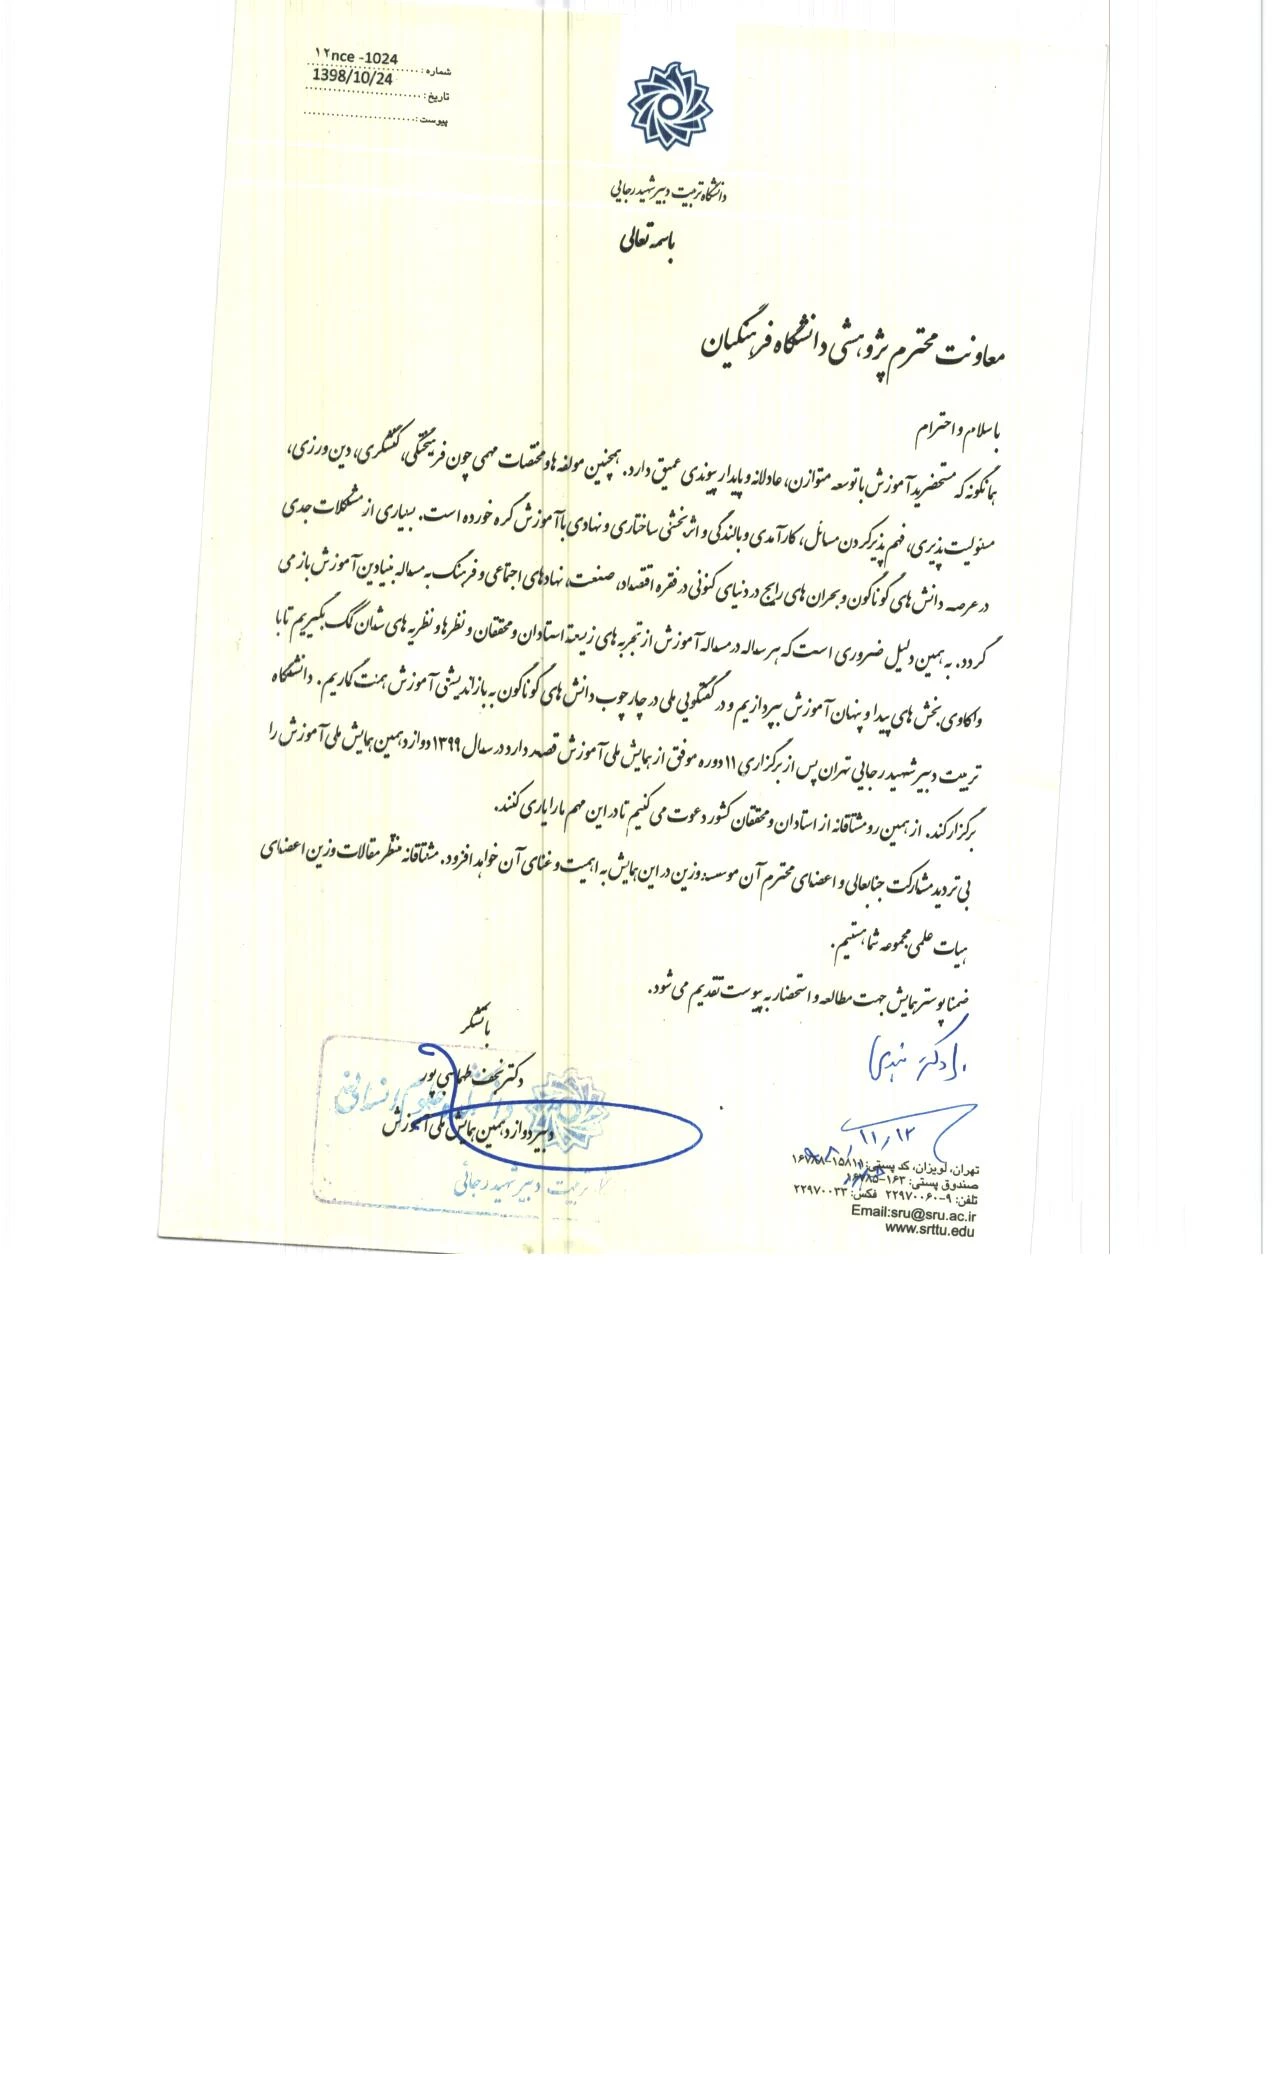 شماره: ۱۲nce -1024
تاریخ: 1398/10/24
پیوست:
دانشگاه تربیت دبیر شهید رجایی
باسمه تعالی
معاونت محترم پژوهشی دانشگاه فرهنگیان
باسلام و احترام
همانگونه که مستحضرید آموزش با توسعه متوازن، عادلانه و پایدار پیوندی عمیق دارد. همچنین مولفه ها و مختصات مهمی چون فرهیختگی، کنشگری، دین ورزی،
مسئولیت پذیری، فهم پذیر کردن مسائل، کارآمدی و بالندگی و اثربخشی ساختاری و نهادی با آموزش گره خورده است. بسیاری از مشکلات جدی
در عرصه دانش های گوناگون و بحران های رایج در دنیای کنونی در فقره اقتصاد، صنعت، نهادهای اجتماعی و فرهنگ به مساله بنیادین آموزش باز می
گردد. به همین دلیل ضروری است که هر ساله در مساله آموزش از تجربه های زیسته استادان و محققان و نظرها و نظریه های شان کمک بگیریم تا با
واکاوی بخش های پیدا و پنهان آموزش بپردازیم و در گفتگویی ملی در چارچوب دانش های گوناگون به بازاندیشی آموزش همت گماریم. دانشگاه
تربیت دبیر شهید رجایی تهران پس از برگزاری ۱۱ دوره موفق از همایش ملی آموزش قصد دارد در سال ۱۳۹۹ دوازدهمین همایش ملی آموزش را
برگزار کند. از همین رو مشتاقانه از استادان و محققان کشور دعوت می کنیم تا در این مهم ما را یاری کنند.
بی تردید مشارکت جنابعالی و اعضای محترم آن موسسه وزین در این همایش به اهمیت و غنای آن خواهد افزود. مشتاقانه منتظر مقالات وزین اعضای
هیات علمی مجموعه شما هستیم.
ضمنا پوستر همایش جهت مطالعه و استحضار به پیوست تقدیم می شود.
باتشکر
دکتر نجف طهماسبی پور
دبیر دوازدهمین همایش ملی آموزش
علوم انسانی
تربیت دبیر شهید رجائی
۱۱٫۱۲
تهران، لویزان، کد پستی: ۱۵۸۱۱-۱۶۷۸۸
صندوق پستی: ۱۶۳-۱۶۷۸۵
تلفن: ۹-۲۲۹۷۰۰۶۰ فکس: ۲۲۹۷۰۰۳۳
Email:sru@sru.ac.ir
www.srttu.edu